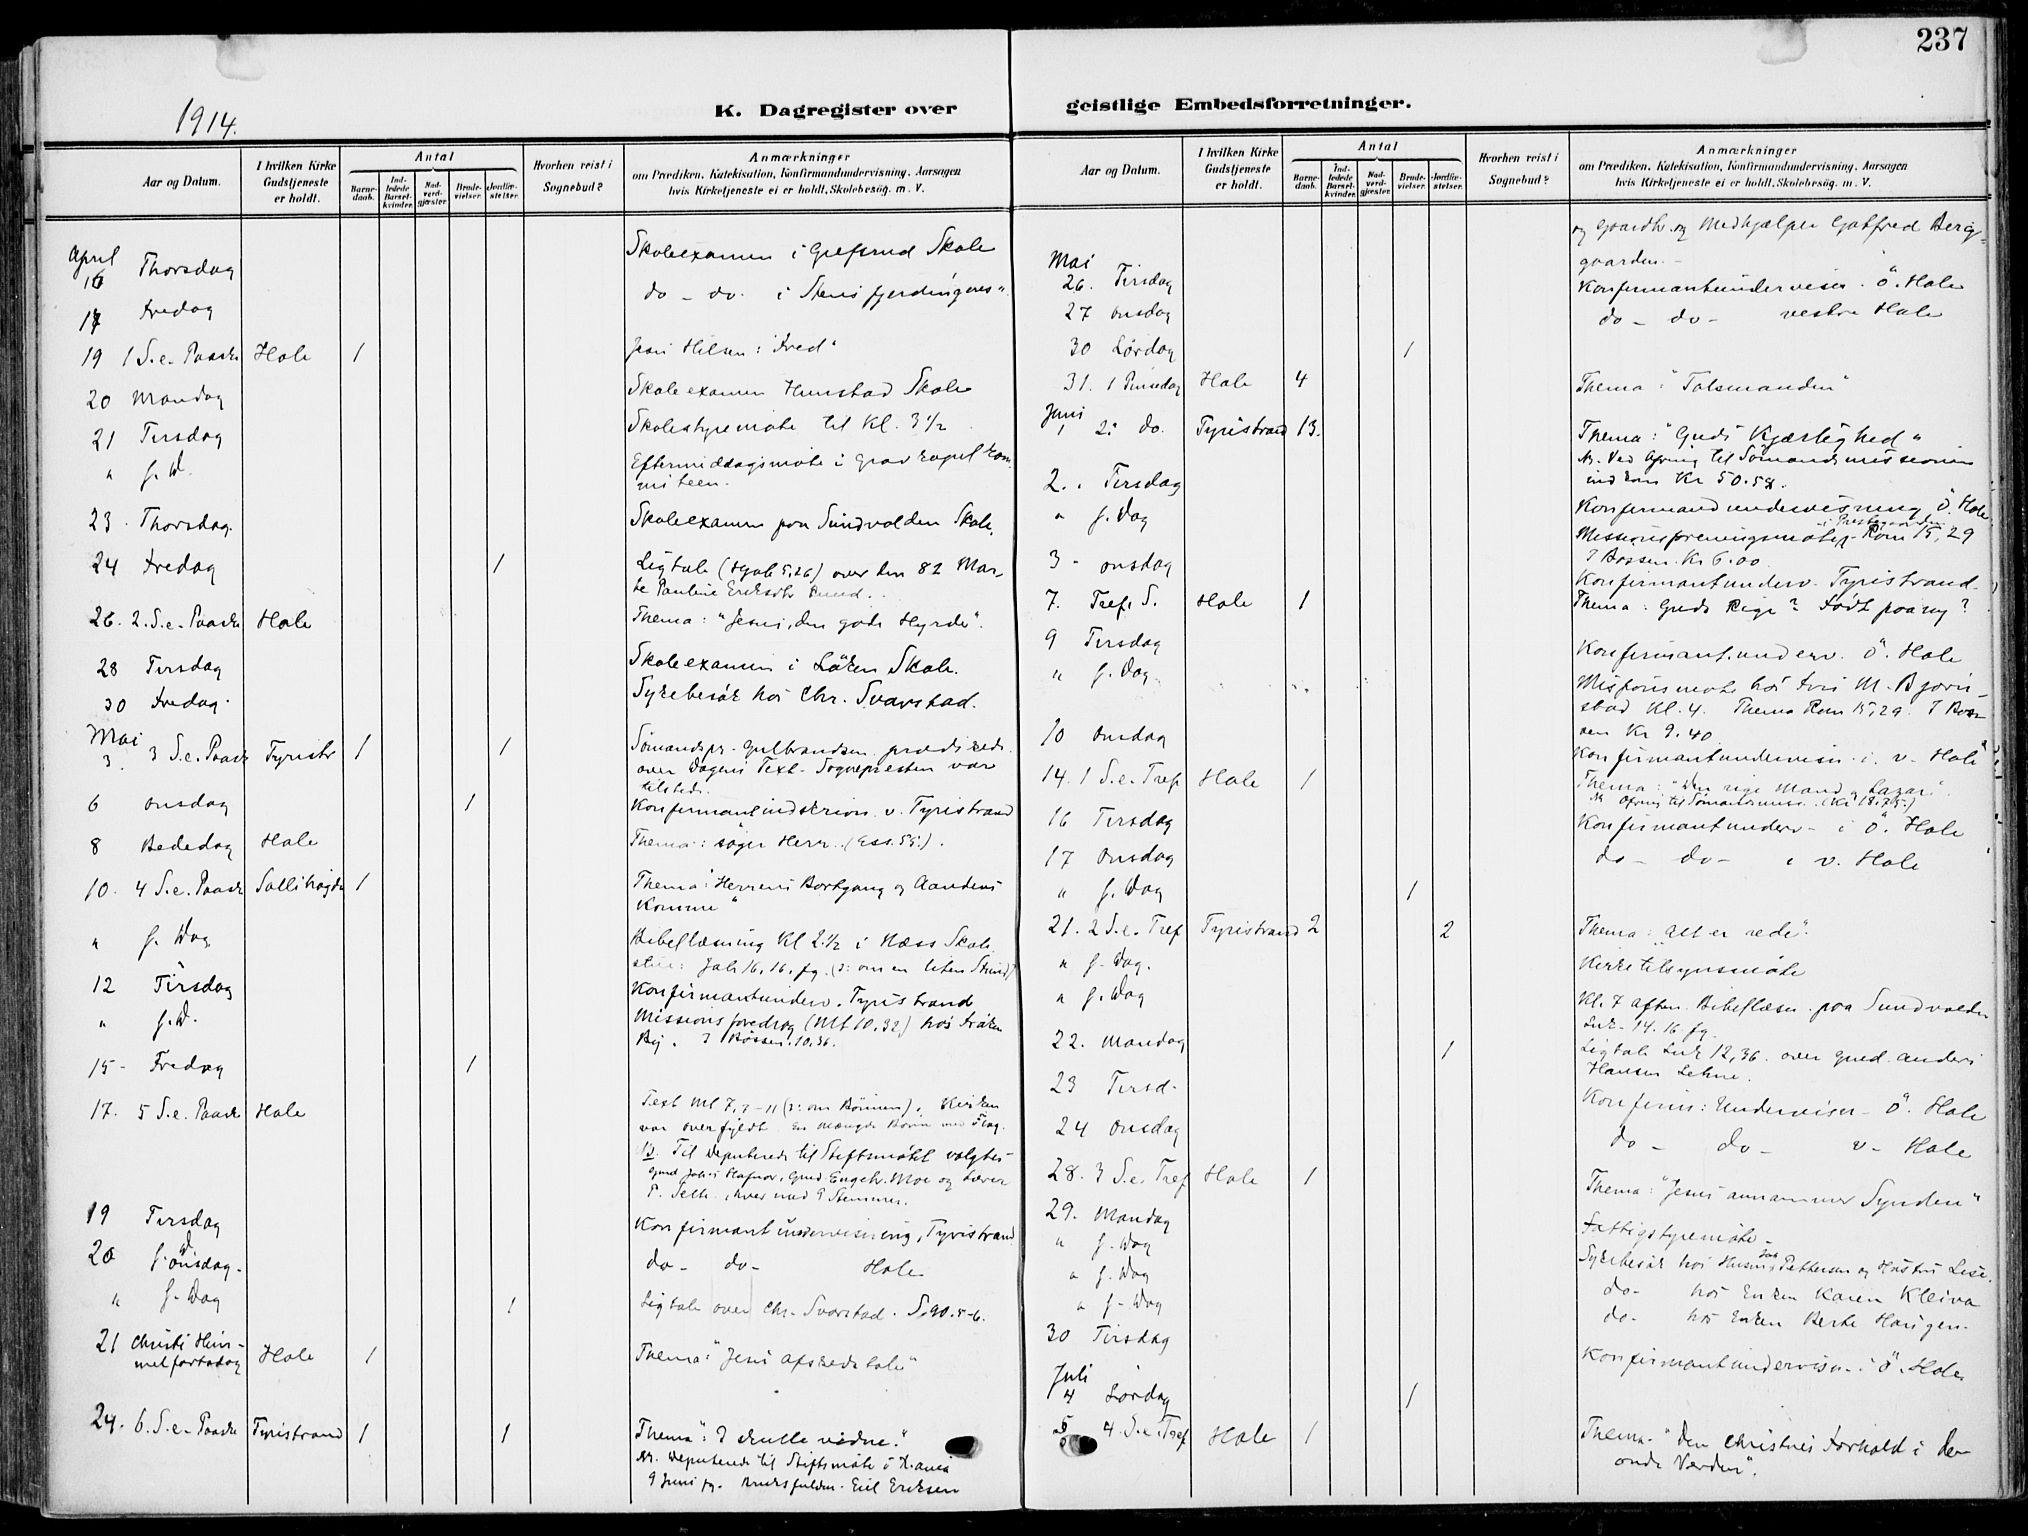 237
1914.
K. Dagregister over
Aar og Datum.
I hvilken Kirke Gudstjeneste er holdt.
Antal
Barnedaab.
Indledede Barselkvinder.
Nadverdgjæster.
Brudevielser.
Jordfæstelser.
Hvorhen reist i Sognebud?
Anmærkninger
om Prædiken, Katekisation, Konfirmandundervisning. Aarsagen
hvis Kirketjeneste ei er holdt, Skolebesög. m. V.
April
16 Thorsdag Skoleexamen i Gjefsrud Skole
17 Fredag do - do. i Stens fjerdingenes
19 1 S. e. Paaske Hole 1 Jesu Hilsen: "Fred"
20 Mandag Skoleexamen Skole
21 Tirsdag Skolestyremöte til Kl. 3 1/2
" s. D. Eftermiddagsmöte i Gravkapelkom
miteen.
23. Thorsdag. Skoleexamen paa Sundvolden Skole.
24 Fredag 1 Ligtale (5,26) over den 82 Mar-
te Pauline Eriksdtr
26. 2. S. e. Paaske Hole Thema: "Jesus, den gode Hyrde".
28 Tirsdag Skoleexamen i Löken Skole.
30 Fredag. Sykebesök hos Chr. Svarstad.
Mai
3. 3 S. e. Paaske Tyristr 1 1 Sömandspr. Gulbrandsen prædikede
over Dagens Text. Sognepresten var
tilstede.
6 Onsdag 1 Konfirmantindskrivn. v. Tyristrand
8 Bededag Hole Thema: söger Herr. (Ess. 55.).
10. 4 S. e. Paaske Sollihögda 1 Thema: "Herrens Bortgang og Aandens
Komme"
" s. Dag Bibellæsning Kl 2 1/2 i Næss Skole
stue: Joh 16, 16, fg. (ɔ: om en liten Stund)
12 Tirsdag Konfirmantunderv. Tyristrand
" s. D. Missionsforedrag (Mt 10.32) hos Fröken
I Bössen. 10.36.
15 - Fredag 1
17. 5 S. e. Paaske Hole Text Mt 7, 7-11 (ɔ: om Bönnen). Kirken
var overfyldt. En Mængde Börn med Flag.
NB. Til Deputerede til Stiftsmötet valgtes
Engebr. Moe og Lærer
P. , hver med 9 Stemmer.
19 Tirsdag Konfirmantundervisning, Tyristrand
20 Onsdag. do - do - Hole
" s. Dag 1 Ligtale over Chr. Svarstad. S. 90.5-6.
21 Christi Him-
melfartsdag Hole 1 Thema: "Jesu Afskedstale"
24. 6. S. e. Paaske Tyristrand 1 1 Thema: "I skulle vidne."
NB. Deputerede til Stiftsmöte i Kr.ania
9 Juni fg. Eriksen
geistlige Embedsforretninger.
Aar og Datum.
I hvilken Kirke Gudstjeneste er holdt.
Antal
Barnedaab.
Indledede Barselkvinder.
Nadverdgjæster.
Brudevielser.
Jordfæstelser.
Hvorhen reist i Sognebud?
Anmærkninger
om Prædiken, Katekisation, Konfirmandundervisning. Aarsagen
hvis Kirketjeneste ei er holdt, Skolebesög. m. V.
og Gaardbr. og Medhjælper Gotfred Berg-
gaarden. -
Mai
26. Tirsdag Konfirmantundervisn. Ö. Hole
27 Onsdag do - do - vestre Hole
30 Lördag 1
31. 1 Pinsedag Hole 4 Thema: "Talsmanden"
Juni
1 2: do. Tyristrand 13. Thema: "Guds Kjærlighed"
NB. Ved Ofring til Sömandsmissionen
indkom Kr 50.52.
2. Tirsdag Konfirmandundervisning, Ö. Hole
" s. Dag Missionsforeningsmöte i Prestegaarden Rom 15, 29
I Bössen. Kr 6.00.
3 - Onsdag Konfirmantunderv. Tyristrand.
7. Tref. S. Hole 1 Thema: Guds Rige? Födt paany?
9 Tirsdag Konfirmant.underv. Ö. Hole
" s. Dag. Missionsmöte hos Fru M. Bjørn-
stad Kl. 4. Thema Rom 15,29. I Bös
sen Kr 9.40
10 Onsdag Konfirmantundervisn. i v. Hole
14. 1 S. e. Tref Hole 1 Thema: "Den rige Mand og Lazar".
NB Ofring til Sömandsmiss. (Kr 18.75.)
16 Tirsdag Konfirmantunderv - i Ö. Hole
17 Onsdag do - do - i v. Hole
" s. Dag 1
21. 2 S. e. Tref Tyristrand 2 2 Thema: "alt er rede".
" s. Dag. Kirketilsynsmöte
" s. Dag Kl. 7 aften Bibellæsn. paa Sundvolden
Luk - 14. 16 fg.
22. Mandag 1 Ligtale Luk 12,36. over Anders
Hansen Lehne.
23 Tirsd - Konfirm: Undervisn - Ö. Hole
24 Onsdag do - do - v - Hole
28. 3 S. e. Tref Hole 1 Thema: "Jesus annammer Syndere"
29. Mandag Fattigstyremöte -
" s. Dag Sykebesök hos Husm. Pettersen og Hustru Lise.
" s. Dag do - hos Enken Karen Kleiva
" s. Dag do - hos Enken Berte Haugen.
30 Tirsdag Konfirmantundervisn - i Ö. Hole
Juli
4 Lördag 1
5 4 S. e. Tref Hole 1 Thema - "Den Christnes Forhold i den
onde Verden".